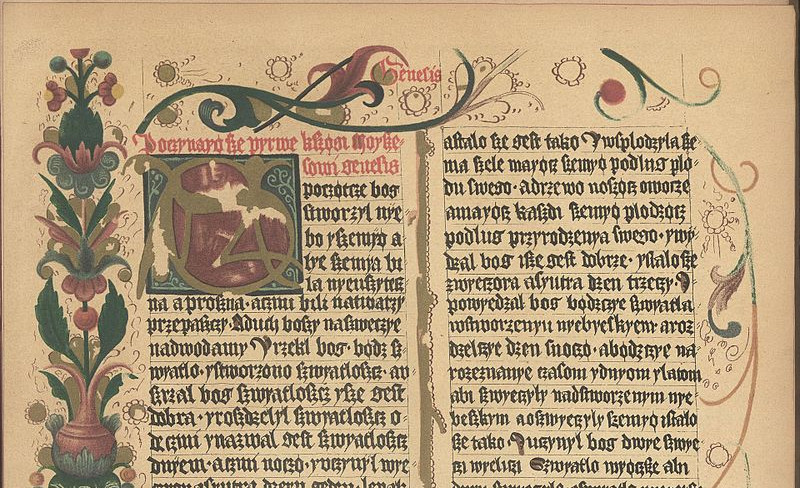 Genesis
Poczynayo sze pyrwe kszøgi Moysze-
sowi genesis
poczøtcze bog
stworzyl nye
bo y szemyø a
lye szemya bi
la nyeuszytcz
na a proszna · aczmi bili natwarzy
przepasczy · Aduch boszy naszweczye
nadwodamy Yrzekl bog · bødz sz
wyatlo · ystworzono szwyatloszcz · au
szrzal bog szwyatloszcz ysze gest
dobra · yrosdzelyl szwyatloszcz o
de czmi ynazwal gest szwyatloszcz
dnyem · aczmi noczø · yuczynyl wye
astalo sze gest tako Ywsplodzyla sze
ma szele mayøcz szemyø podlug plo-
du swego · adrzewo noszøcz owocze
amayøcz kaszdi szemyø plodzøcz
podlug przyrodzenya swego · ywy
dzal bog isze gest dobrze · ystalo sze
zwyeczora aiyutra dzen trzeczy ·
powyedzal bog bødzcze szwyatla
wstworzenyu nyebyeskyem aroz
dzelczye dzen snoczø · abødzcye na
rozeznanye czasom ydnyom ylatom
abi szwyeczyly nadstworzenym nye
beskym aoszwyeczyly szemyø istalo
sze tako Yuczynyl bog dwye szwye
czi wyelizi Szwyatlo wyøcsze abi